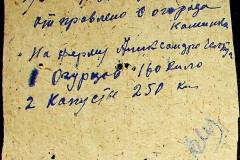 отправлено в огорода
Калинина
На ферму Александру
1 Огурцов 160 кило
2 Капусты 250 кил